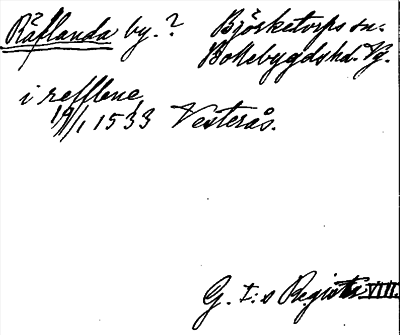 Räflanda by.? Björketorps sn.
Bollebygds hd. Vg.
i refflene
19/1 1533 Vesterås.
G. I:s Registr. VIII.